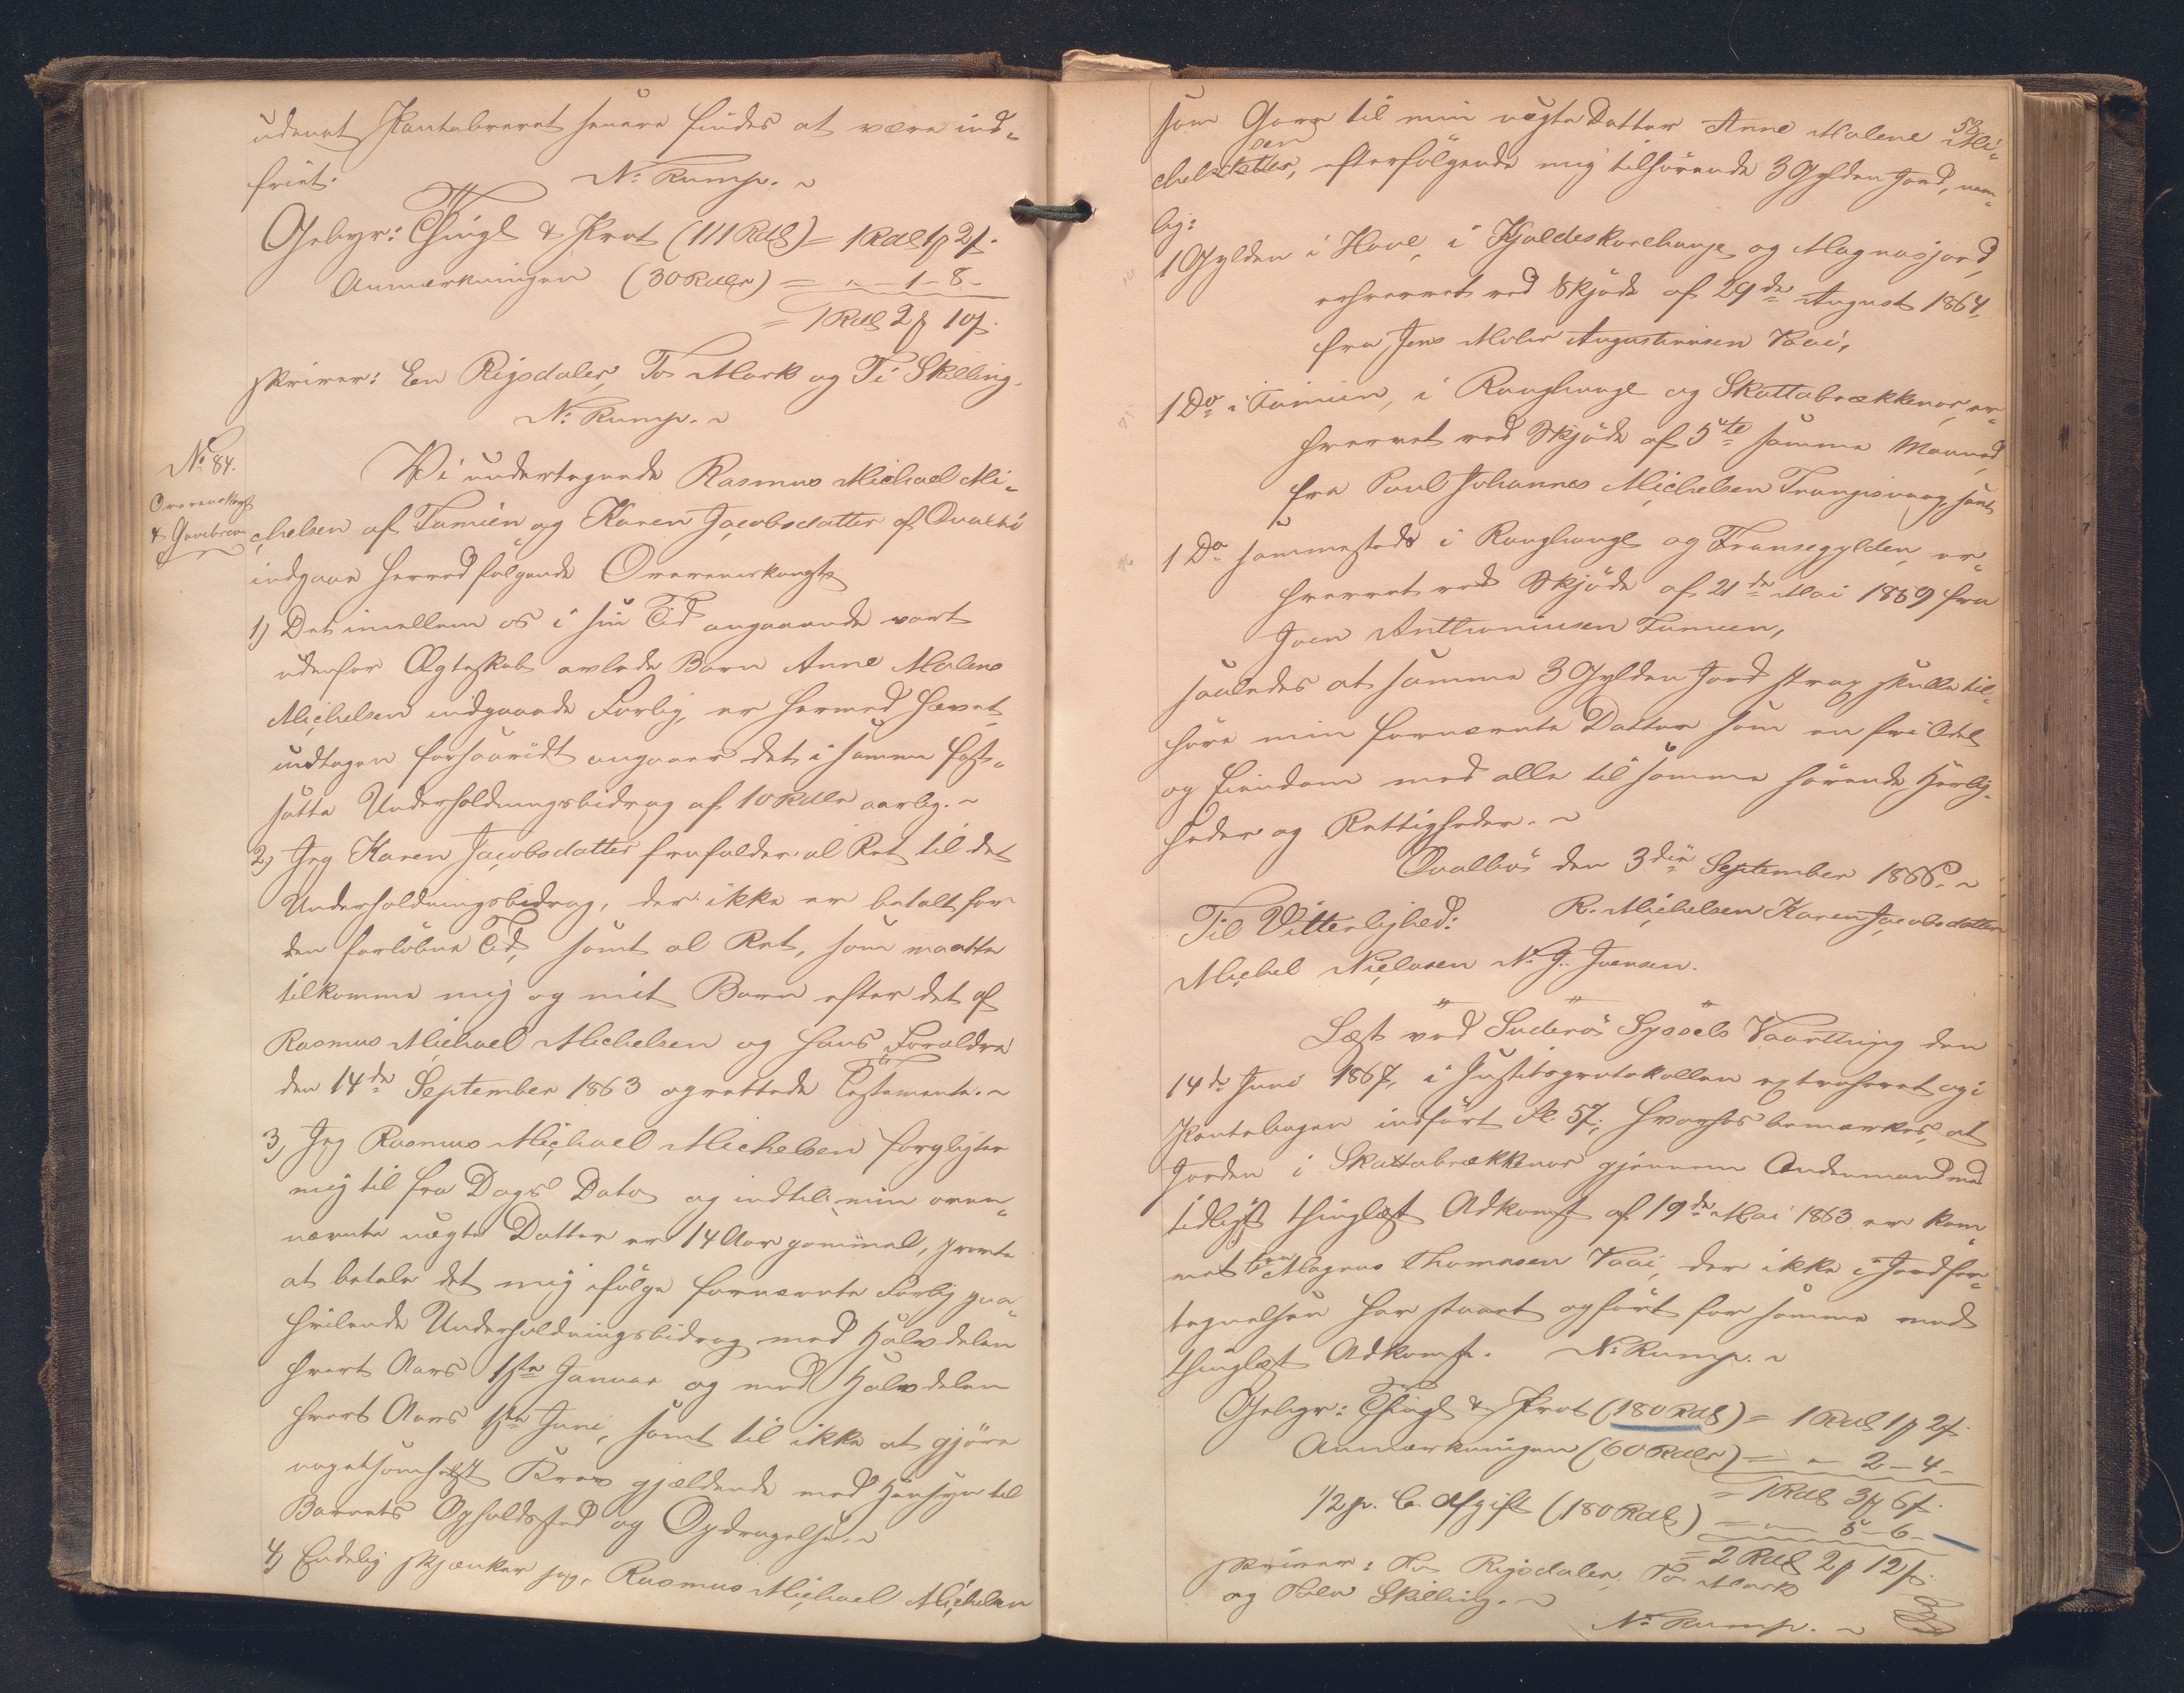 udenat Pantebrevet senere findes at være ind-
friet.
N. Rump.
Gebyr: Thingl & Prot (111 Rdl) = 1 Rdl 1 ꝑ 2 ſ.
Anmærkningen (30 Rdlr) = " - 1 - 8 -
= 1 Rdl 2 ꝑ 10 ſ.
skriver: En Rigsdaler, To Mark og Ti Skilling.
N. Rump.
No 84.
Overenskomst
& Gavebrev
Vi undertegnede Rasmus Michael Mi-
chelsen af Famien og Karen Jacobsdatter af Qvalbö
indgaae herved følgende Overenskomst:
1) Det imellem os i sin Tid angaaende vort
udenfor Ægteskab avlede Barn Anne Malene
Michelsen indgaaede Forlig, er hermed hævet,
undtagen forsaavidt angaaer det i samme fast-
satte Underholdningsbidrag af 10 Rdlr aarlig.
2) Jeg Karen Jacobsdatter frafalder al Ret til det
Underholdningsbidrag, der ikke er betalt for
den forløbne Tid, samt al Ret, som maatte
tilkomme mig og mit Barn efter det af
Rasmus Michael Michelsen og hans Forældre
den 14de September 1863 oprettede Testamente.
3) Jeg Rasmus Michael Michelsen forpligter
mig til fra Dags Dato og indtil min oven-
nævnte uægte Datter er 14 Aar gammel, præcise
at betale det mig ifølge fornævnte Forlig paa-
hvilende Underholdningsbidrag med Halvdelen
hvert Aars 1ste Januar og med Halvdelen
hvert Aars 1ste Juni, samt til ikke at gjöre
nogetsomhelst Krav gjældende med Hensyn til
Barnets Opholdssted og Opdragelse.
4) Endelig skjænker jeg, Rasmus Michael Michelsen
58.
som Gave til min uægte Datter Anne Malene Mi-
chelsen, efterfølgende mig tilhörende 3 Gylden Jord, nem-
lig:
1 Gylden i Hove, i Kjaldeskarehauge og Magnasjord,
erhvervet ved Skjöde af 29de August 1864,
fra Jens Maler Augustinusen Vaai,
1 Do i Famien, i Ranghauge og Skattabrækkenor, er-
hvervet ved Skjöde af 5te samme Maaned
fra Poul Johannes Michelsen Trangisvaag, samt
1 Do sammesteds i Ranghauge og Fransegylden, er-
hvervet ved Skjöde af 21de Mai 1859 fra
Joen Anthoniusen Famien,
saaledes at samme 3 Gylden Jord strax skulle til-
höre min fornævnte Datter som en fri Odel
og Eiendom med alle til samme hörende Herlig-
heder og Rettigheder.
Qvalbö den 3die September 1866.
Til Vitterlighed: R. Michelsen Karen Jacobsdatter
Michel Nielsen N. J. Joensen.
Læst ved Suderö Syssels Vaarthing den
14de Juni 1867, i Justitsprotokollen extraheret og i
Pantebogen indfört fol. 57; hvorhos bemærkes, at
Jorden i Skattabrækkenor gjennem Andenmand med
tidligst thinglæst Adkomst af 19de Mai 1863 er kom-
met fra Magnus Thomasen Vaai, der ikke i Jordfor-
tegnelsen har staaet opfört for samme med
thinglæst Adkomst. N. Rump.
Gebyr: Thingl & Prot (180 Rdl) = 1 Rdl 1 ꝑ 2 ſ.
Anmærkningen (60 Rdlr) = " - 2 - 4 -
= 1 Rdl 3 ꝑ 6 ſ.
1/2 p. C. Afgift (180 Rdl) = " - 5 - 6 -
= 2 Rdl 2 ꝑ 12 ſ.
skriver: To Rigsdaler, To Mark
og Tolv Skilling.
N. Rump.